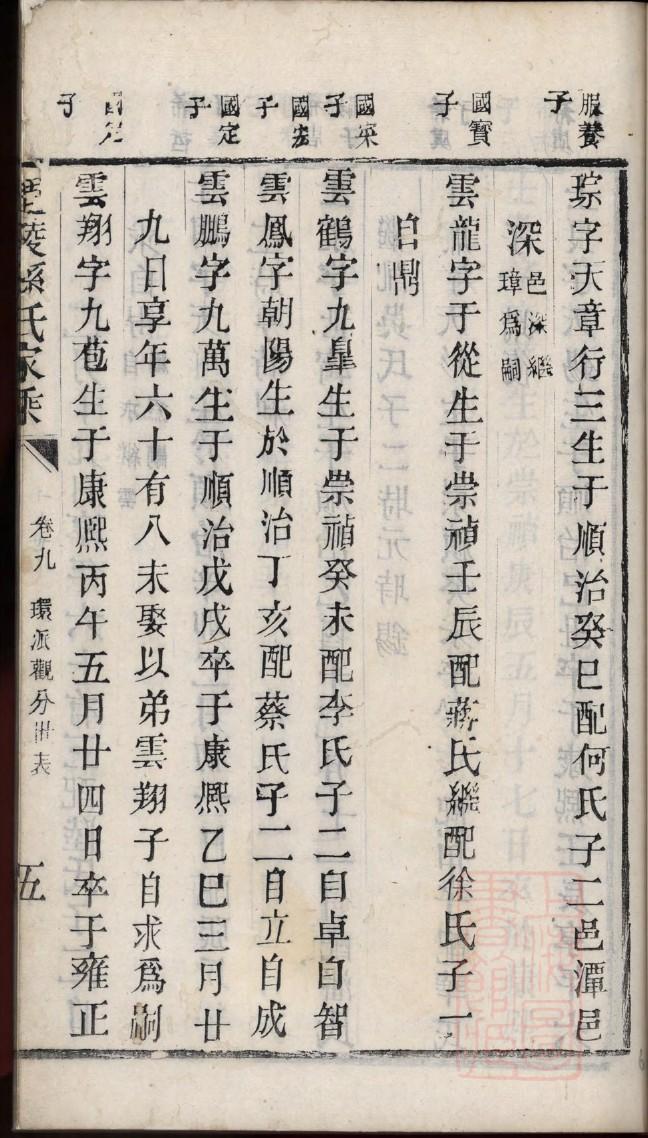 服養子
琮字天章行三生于順治癸巳配何氏子二邑潭邑
深邑深繼
璋爲嗣
國寶子
雲龍字于從生于崇禎壬辰配蔣氏繼配徐氏子一
自鼎
國寀子
雲鶴字九臯生于崇禎癸未配李氏子二自卓自智
國宏子
雲鳳字朝陽生於順治丁亥配蔡氏子二自立自成
國定子
雲鵬字九萬生于順治戊戌卒于康熙乙巳三月廿
九日享年六十有八未娶以弟雲翔子自求爲嗣
國定子
雲翔字九苞生于康熙丙午五月廿四日卒于雍正
陵孫氏家乘
卷九
環派觀分世表
五